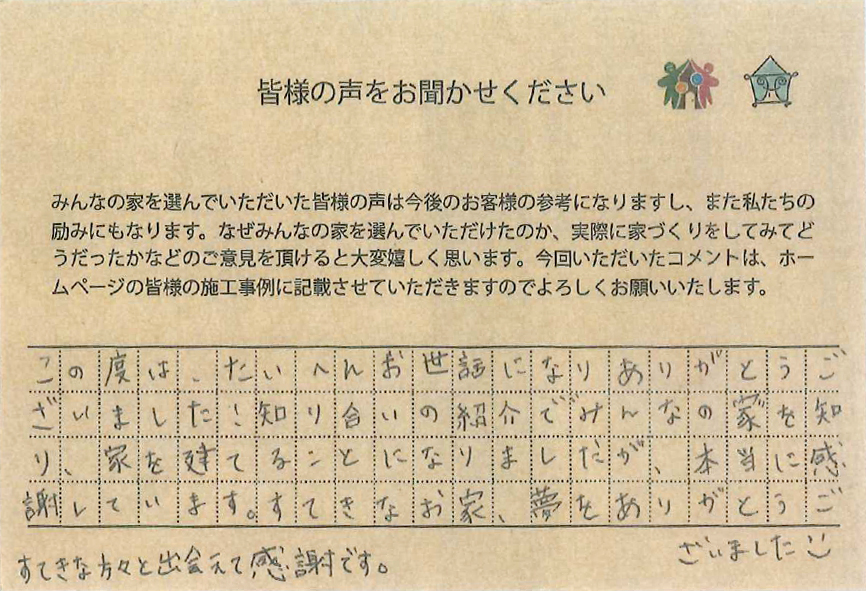 皆様の声をお聞かせください
みんなの家を選んでいただいた皆様の声は今後のお客様の参考になりますし、また私たちの
励みにもなります。なぜみんなの家を選んでいただけたのか、実際に家づくりをしてみてど
うだったかなどのご意見を頂けると大変嬉しく思います。今回いただいたコメントは、ホー
ムページの皆様の施工事例に記載させていただきますのでよろしくお願いいたします。
この度は、たいへんお世話になりありがとうご
ざいました!知り合いの紹介でみんなの家を知
り、家を建てることになりましたが、本当に感
謝しています。すてきなお家、夢をありがとうご
ざいました
すてきな方々と出会えて感謝です。